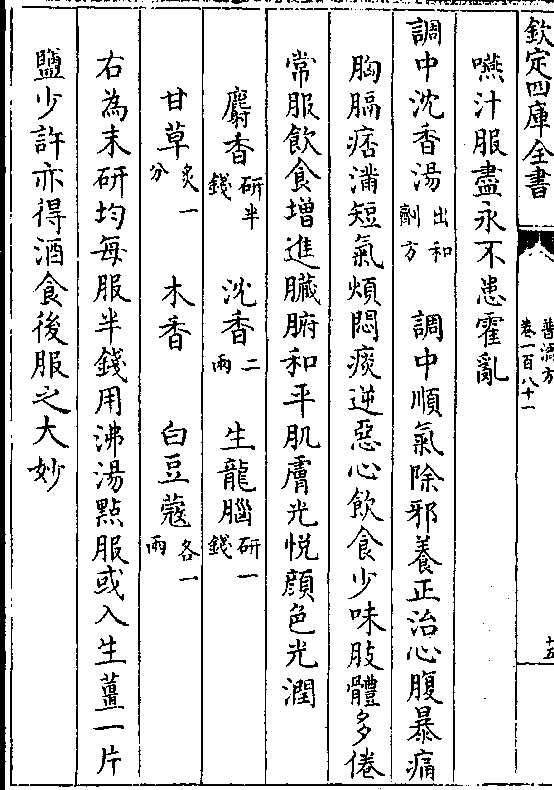 欽定四庫全書
普濟方
卷一百八十一
十五
嚥汁服盡永不患霍亂
調中沈香湯出和劑方 調中順氣除邪養正治心腹暴痛
胸膈痞滿短氣煩悶痰逆惡心飲食少味肢體多倦
常服飲食增進臟腑和平肌膚光悦顔色光潤
麝香研半錢 沈香二兩 生龍腦研一錢
甘草炙一分 木香 白豆蔻各一兩
右為末研均每服半錢用沸湯點服或入生薑一片
鹽少許亦得酒食後服之大妙